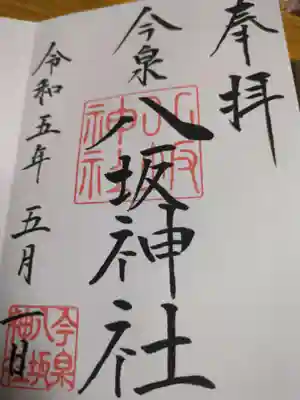 奉拝
今泉
八坂神社
八坂神社
令和五年 五月 一日
今泉八坂神社